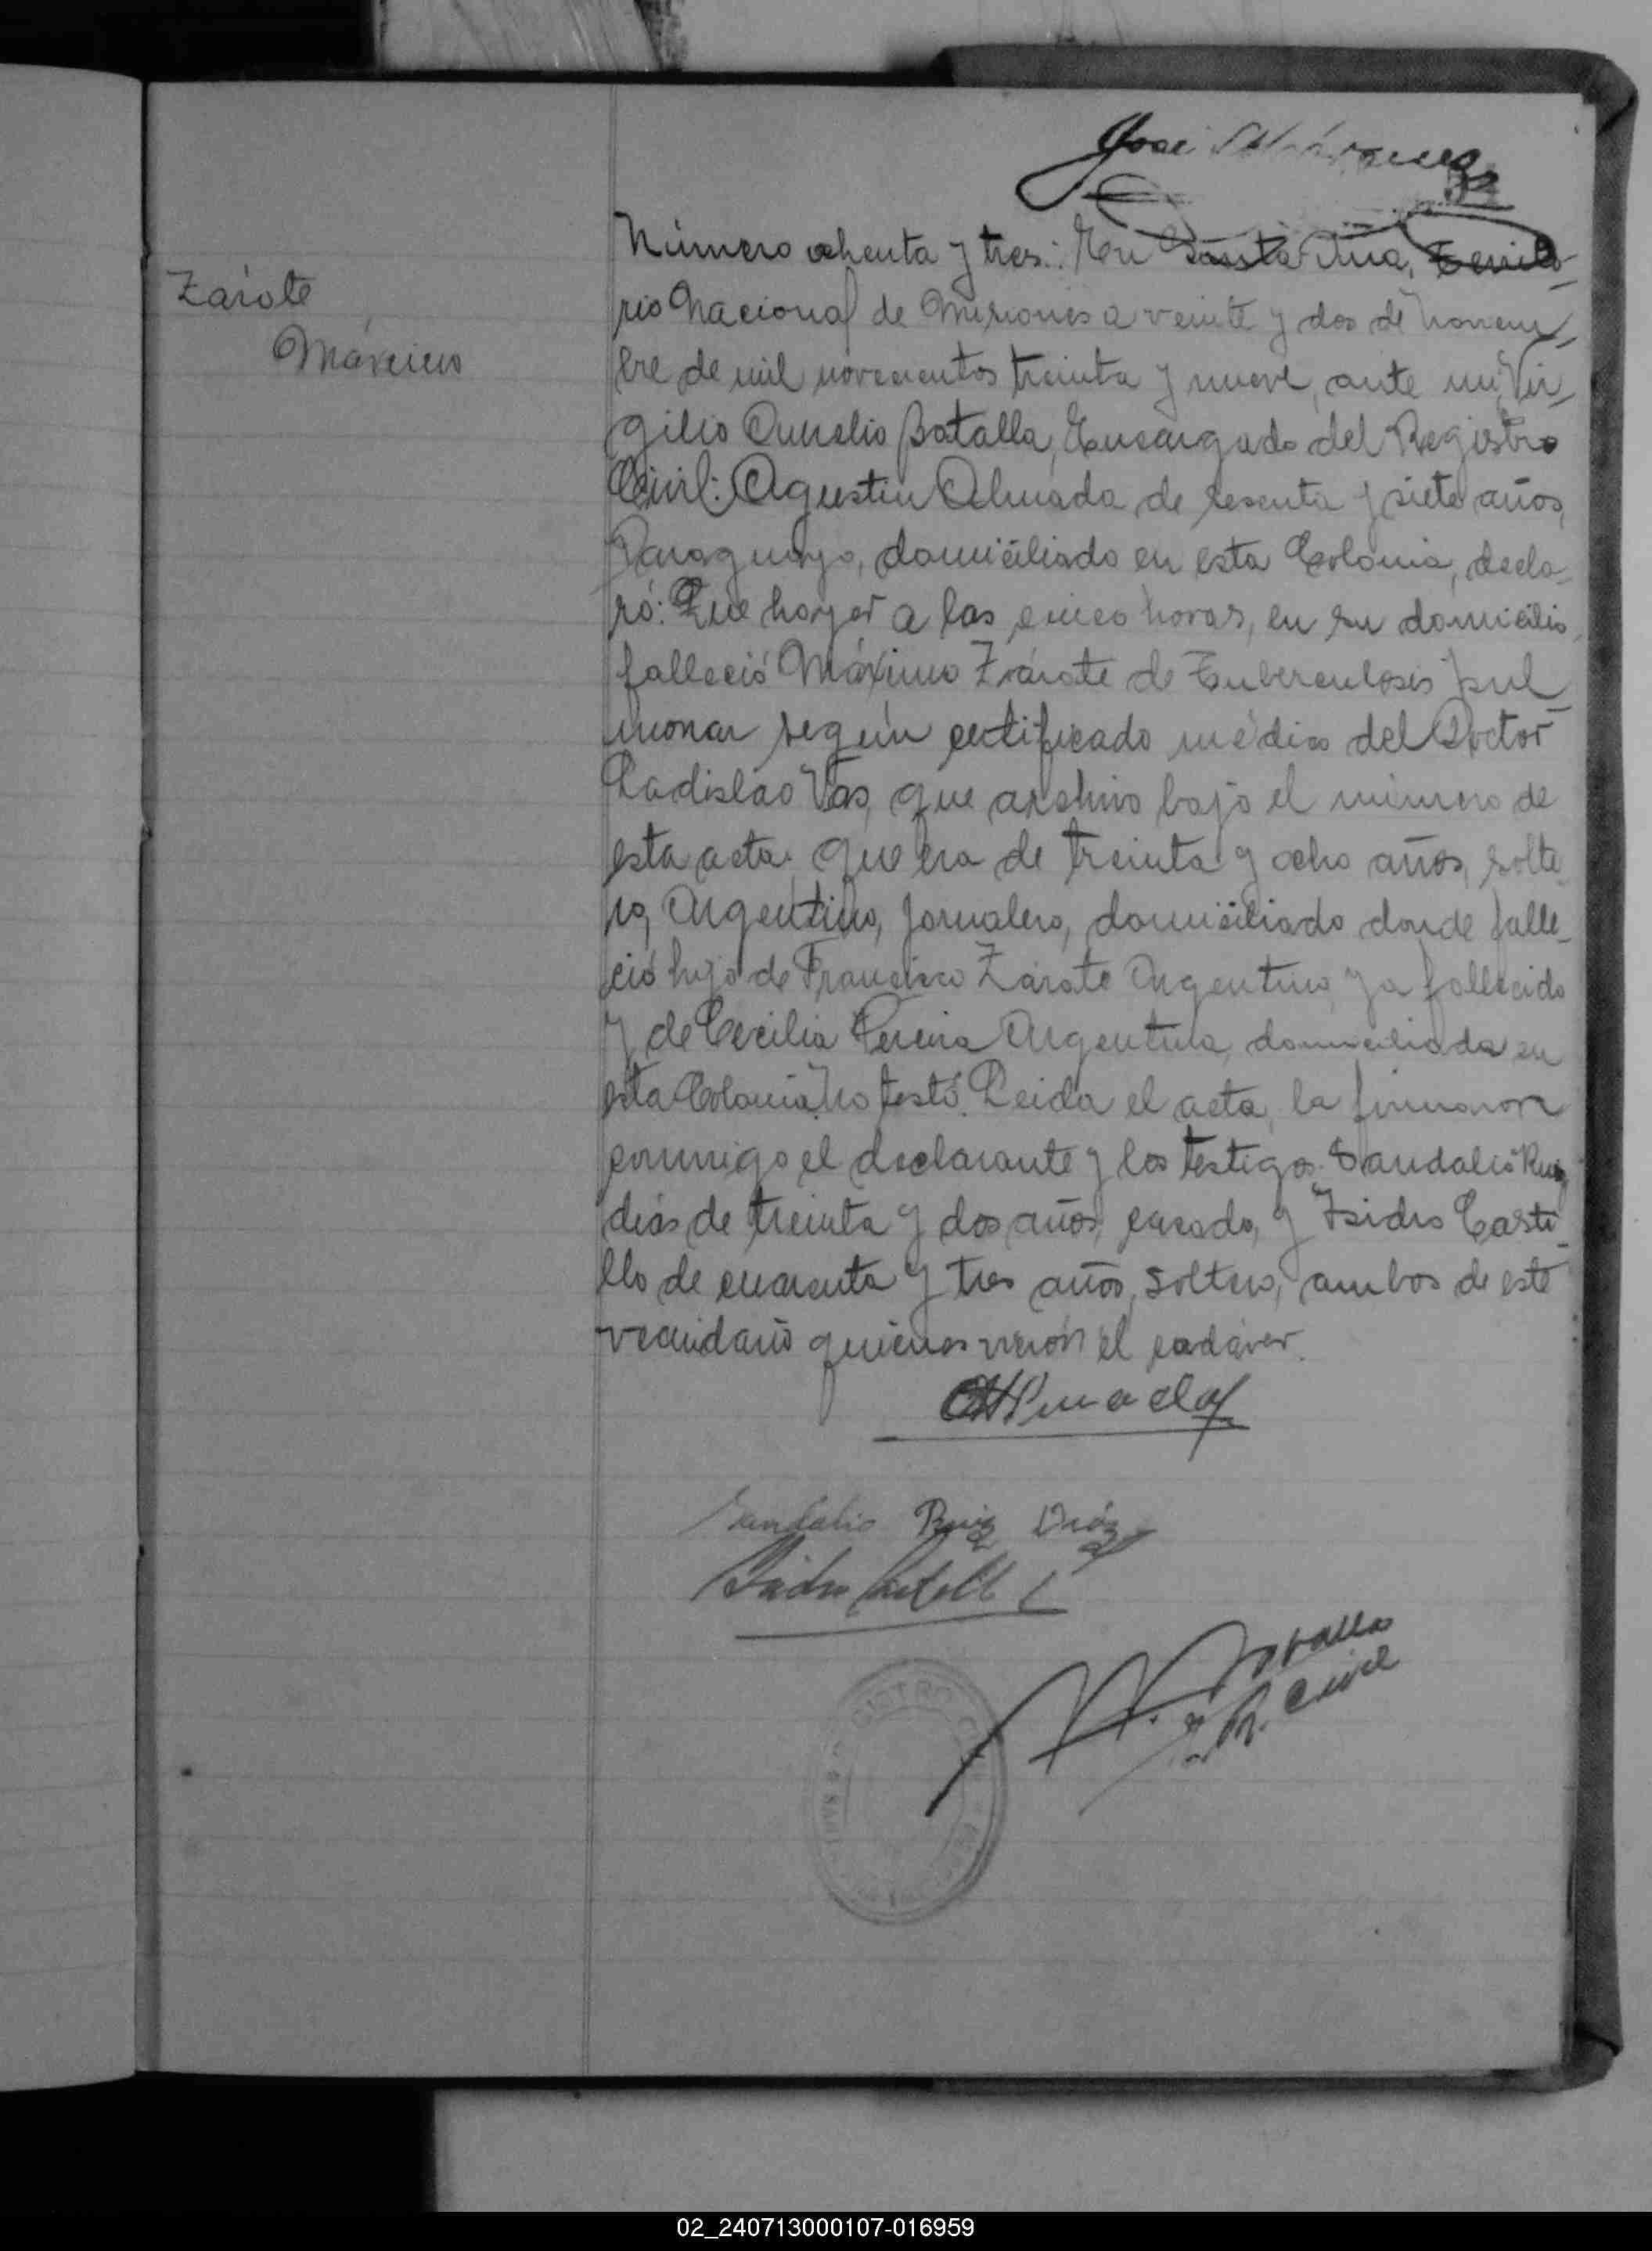 José
Número ochenta y tres: En Santa Ana, Territo-
rio Nacional de Misiones a veinte y dos de Noviem-
Zárate
Máximo
bre de mil novecientos treinta y nueve, ante mi, Vir-
gilio Aurelio Batalla, Encargado del Registro
Civil: Agustin Almada de sesenta y siete años,
Paraguayo, domiciliado en esta Colonia, decla-
ró: Que hoy a las cinco horas, en su domicilio,
falleció Máximo Zárate de Tuberculosis pul-
monar según certificado médico del Doctor
Ladislao Vas, que archivo bajo el número de
esta acta: que era de treinta y ocho años, solte-
ro, Argentino, Jornalero, domiciliado donde falle-
ció hijo de Francisco Zárate Argentino, ya fallecido
y de Cecilia Pereira Argentina, domiciliada en
esta Colonia. No testó. Leida el acta, la firmaron
conmigo el declarante y los testigos. Sandalio Ruiz
dias de treinta y dos años, casado, y Isidro Casti-
llo de cuarenta y tres años, soltero, ambos de este
vecindario quienes vieron el cadáver.
A Almada
Sandalio Ruiz Diaz
Isidro Castillo
V. A. Batalla
E. R. Civil
02_240713000107-016959